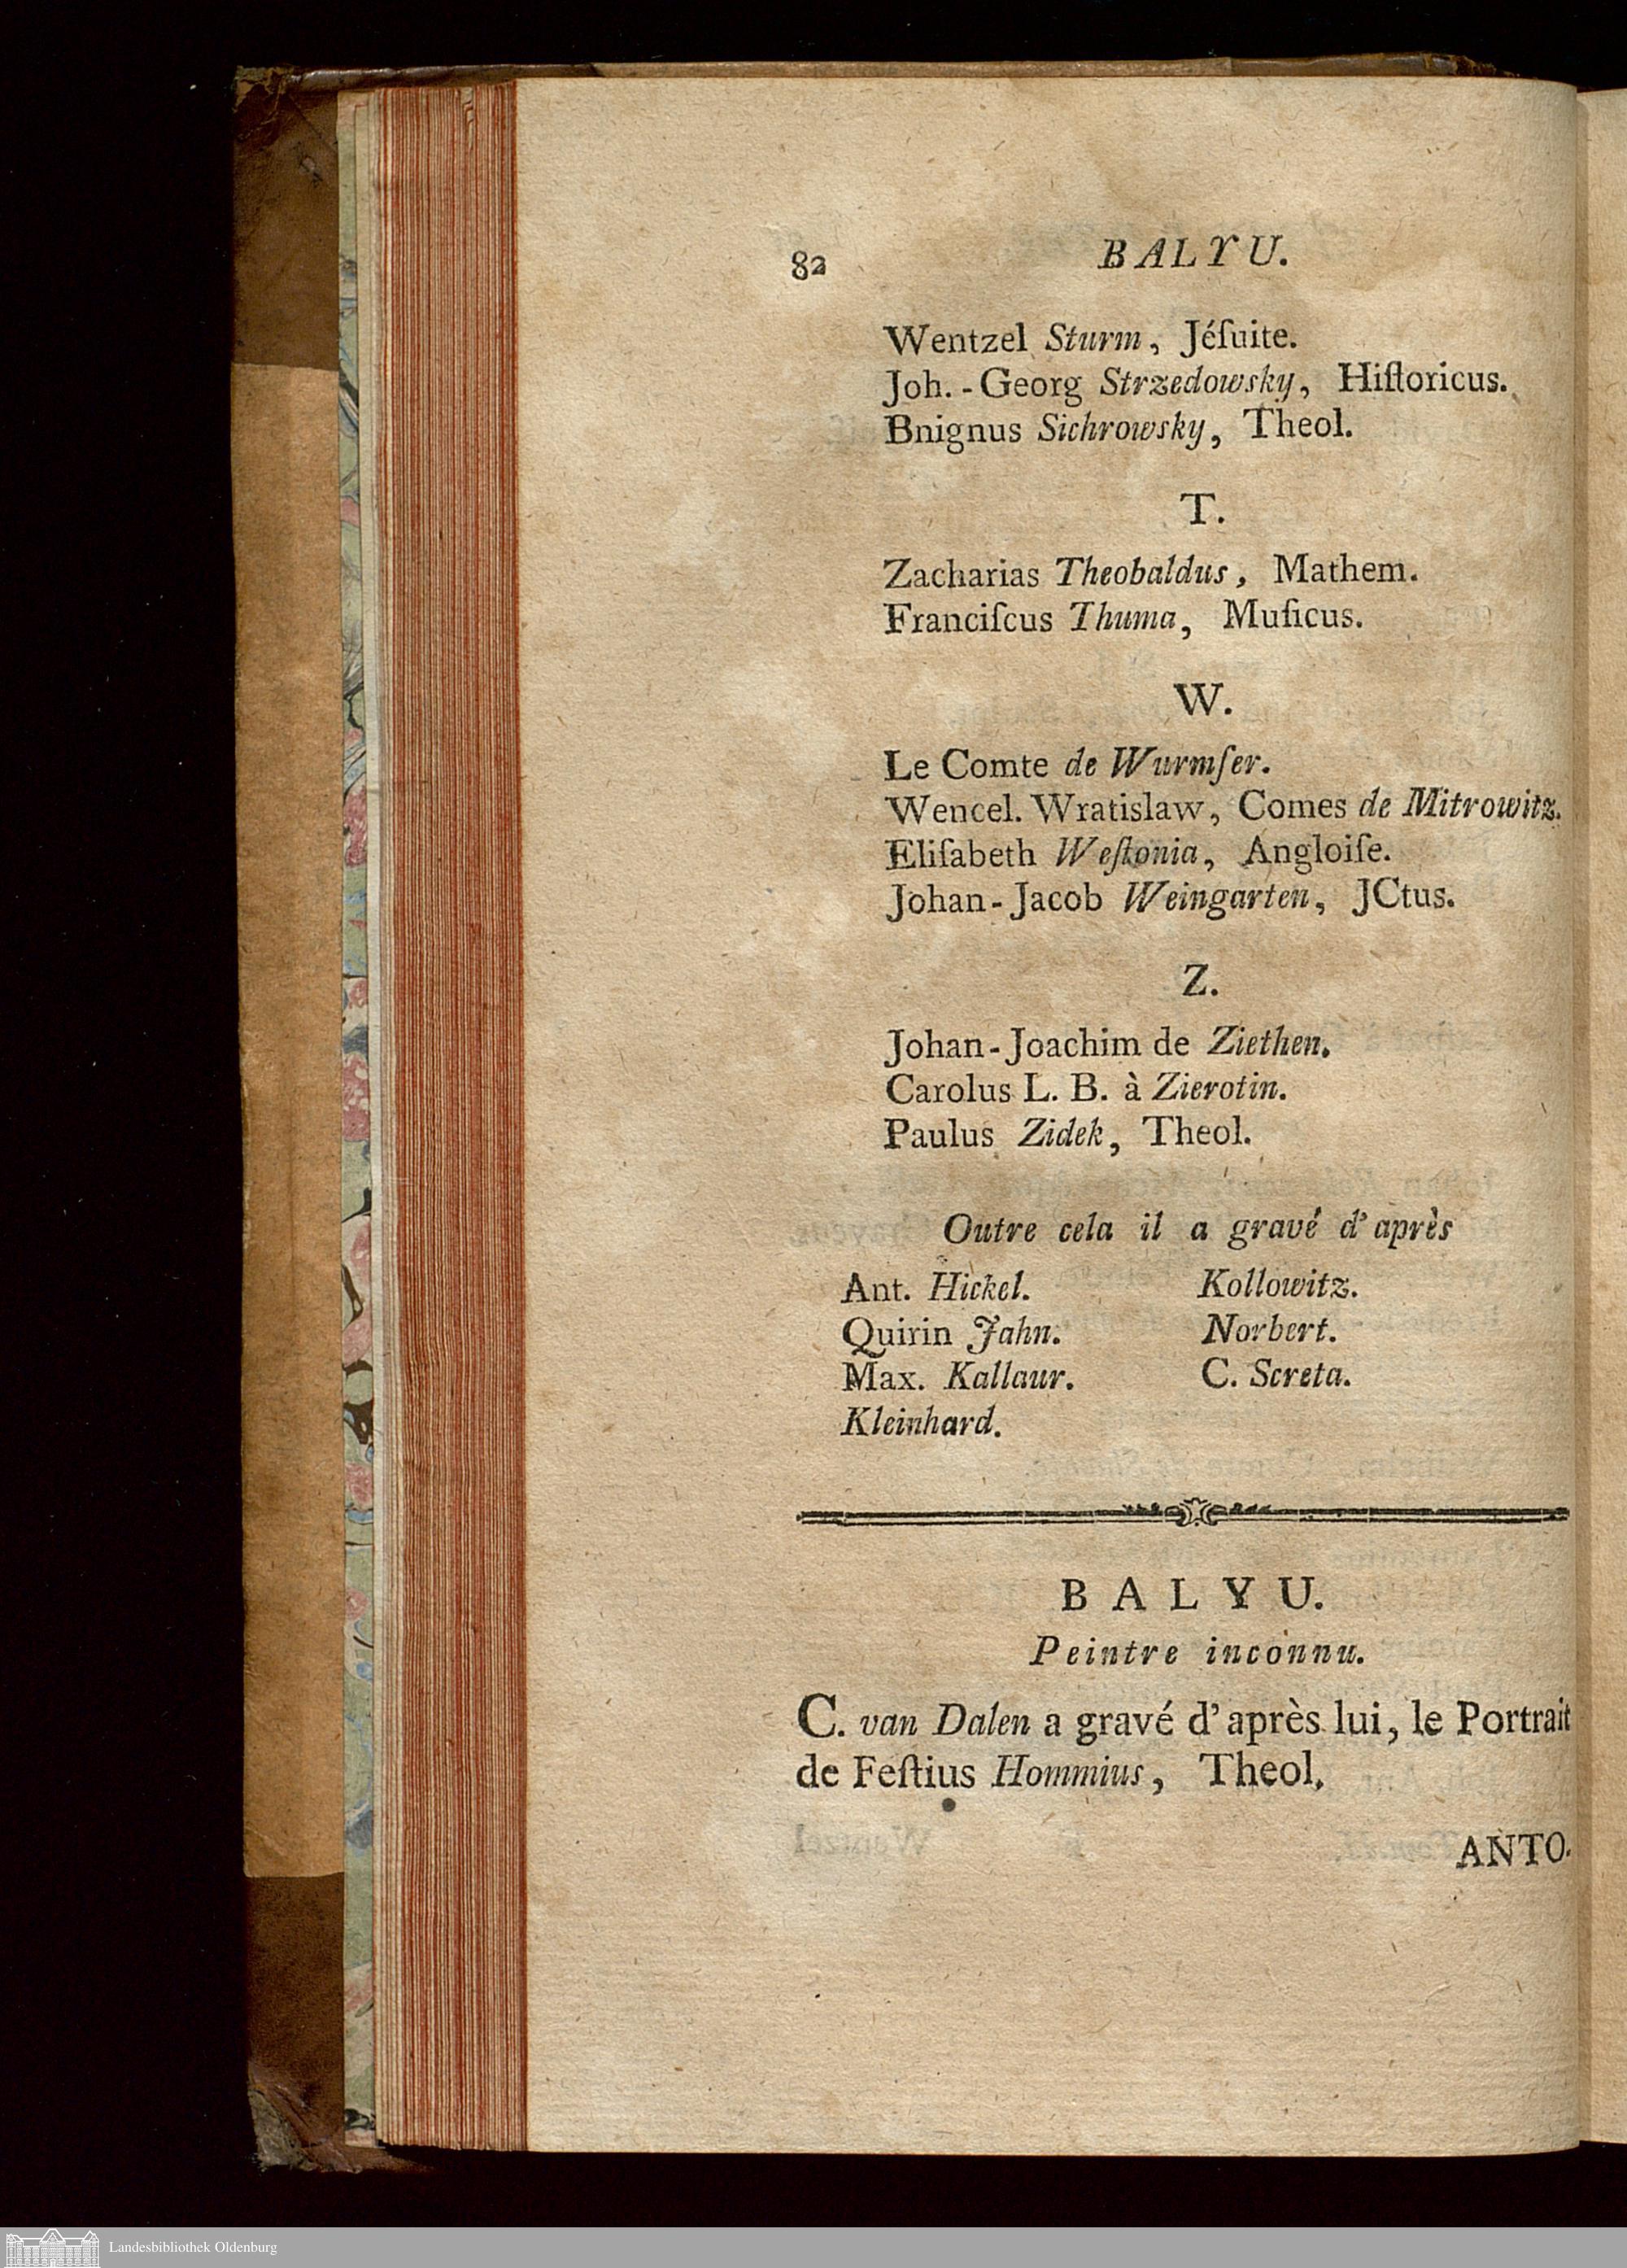 82 BALYU.
Wentzel Sturm, Jéſuite.
Joh.-Georg Strzedowsky, Hiſtoricus.
Bnignus Sichrowsky, Theol.
T.
Zacharias Theobaldus, Mathem.
Franciſcus Thuma, Muſicus.
W.
Le Comte de Wurmſer.
Wencel. Wratislaw, Comes de Mitrowitz.
Eliſabeth Weſtonia, Angloiſe.
Johan-Jacob Weingarten, JCtus.
Z.
Johan-Joachim de Ziethen.
Carolus L. B. à Zierotin.
Paulus Zidek, Theol.
Outre cela il a gravé d'après
Ant. Hickel.
Quirin Jahn.
Max. Kallaur.
Kleinhard.
Kollowitz.
Norbert.
C. Screta.
BALYU.
Peintre inconnu.
C. van Dalen a gravé d'après lui, le Portrait
de Feſtius Hommius, Theol.
ANTO-
Landesbibliothek Oldenburg